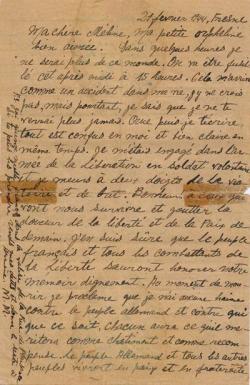 21 fevrier 1944, Fresne
Ma chère Méline, ma petite orpheline
bien aimée. Dans quelques heures je
ne serai plus de ce monde. On va être fusillé
cet après midi à 15 heures. Cela m'arrive
comme un accident dans ma vie, j'y ne crois
pas, mais pourtant, je sais que je ne te
verrai plus jamais. Que puis-je t'écrire,
tout est confus en moi et bien claire en
même temps. Je m'étais engagé dans l'ar
mée de la Libération en soldat volontaire
et je meurs à deux doigts de la vic
toire et de but. Bonheur à ceux qui
vont nous survivre et goutter la
douceur de la liberté et de la Paix de
demain. J'en suis sûre que le peuple
français et tous les combattants de
la Liberté sauront honorer notre
memoire dignement. Au moment de mou
rir je proclame que je n'ai aucune haine
contre le peuple allemand et contre qui
que ce soit, chacun aura ce qu'il me
ritera comme châtiment et comme recom
pense. Le peuple Allemand et tous les autres
peuples vivront en paix et en fraternité